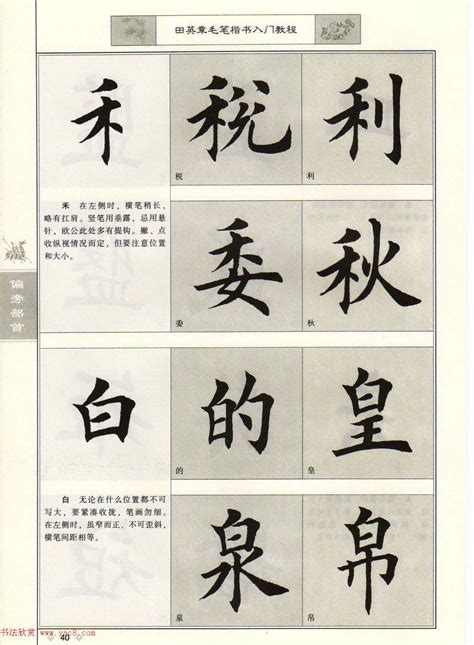 田英章毛笔楷书入门教程
禾 税 利
税 利
禾 在左侧时，横笔稍长，
略有扛肩。竖笔用垂露，忌用悬
针，欧公此处多有提钩。撇、点
收纵视情况而定，但要注意位置
和大小。
委 秋
委 秋
偏旁部首
白 的 皇
的 皇
白 无论在什么位置都不可
写大，要紧凑收拢，笔画勿细。
在左侧时，虽窄而正，不可歪斜，
横笔间距相等。
泉 帛
泉 帛
40
书法欣赏 www.yac8.com